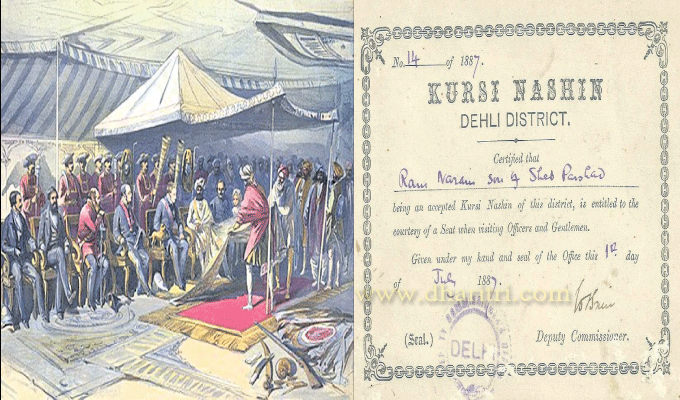 No. 14 of 1887.
KURSI NASHIN
DEHLI DISTRICT.
Certified that
Ram Narain Son of Sheo Parshad
being an accepted Kursi Nashin of this district, is entitled to the
courtesy of a Seat when visiting Officers and Gentlemen.
Given under my hand and seal of the Office this 1st day
of July 1887.
www.dhantri.com
(Seal.) DELHI Deputy Commissioner.